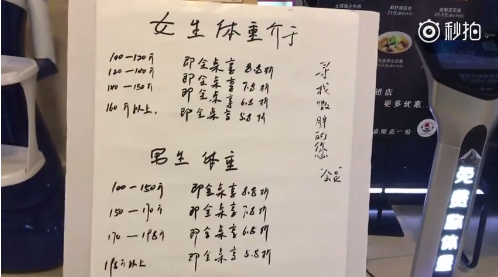 女生体重介于
100-120斤 即全桌享 8.8折
120-140斤 即全桌享 7.8折
140-150斤 即全桌享 6.8折
160斤以上. 即全桌享 5.8折
男生体重
100-150斤 即全桌享 8.8折
150-170斤 即全桌享 7.8折
170-195斤 即全桌享 6.8折
195斤以上 即全桌享 5.8折
寻找微胖的您
秒拍
更多优惠
免费称体重